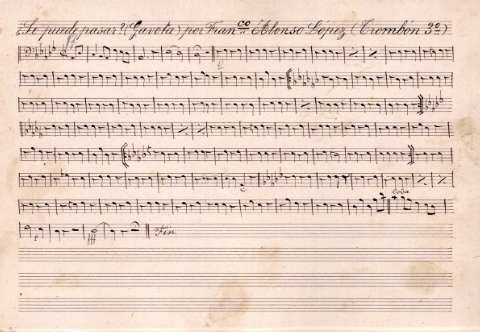 ¿Se puede pasar? (Gavota) por Fran.co Alonso López (Trombón 3º)
Coda
fff Fin